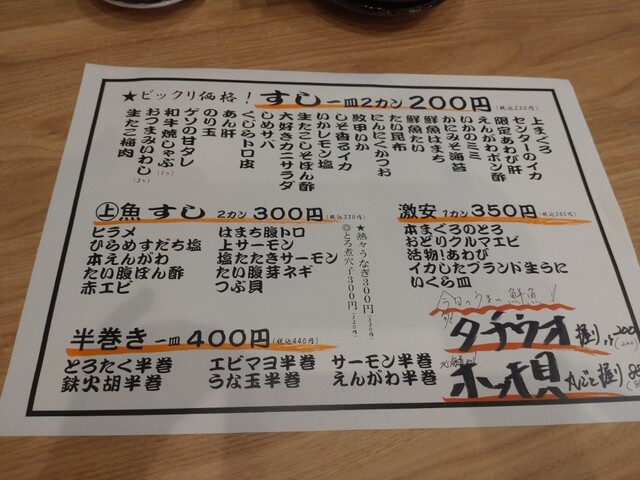 ★ビックリ価格!すし一皿2カン200円(税込220円)
上まぐろ
センターのイカ
限定あわび肝
えんがわポン酢
いかのミミ
かにみそ海苔
鮮魚はまち
鮮魚たい
たい昆布
にんにくかつお
数甲いか
しそ香るイカ
いかしそレモン塩
生たこしそぽん酢
大好きカニサラダ
しめサバ
くじらトロ皮
あん肝
のり玉
ゲソの甘タレ
和牛焼しゃぶ
おつまみいわし
生たこ梅肉
上魚すし 2カン300円(税込330円)
ヒラメ
ひらめすだち塩
本えんがわ
たい腹ぽん酢
赤エビ
はまち腹トロ
上サーモン
塩たたきサーモン
たい腹芽ネギ
つぶ貝
★熱々うなぎ300円
◎とろ煮穴子300円
激安 1カン350円
本まぐろのとろ
おどりクルマエビ
活物!あわび
イカしたブランド生うに
いくら皿
今日のうまい鮮魚!
タチウオ 握り
ホッキ貝 丸ごと握り
半巻き 一皿400円(税込440円)
とろたく半巻 エビマヨ半巻 サーモン半巻
鉄火胡半巻 うな玉半巻 えんがわ半巻